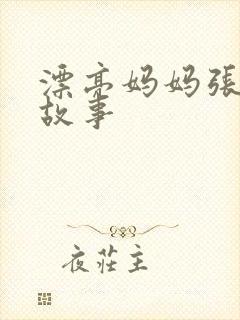 漂亮妈妈張
故事
夜莊主